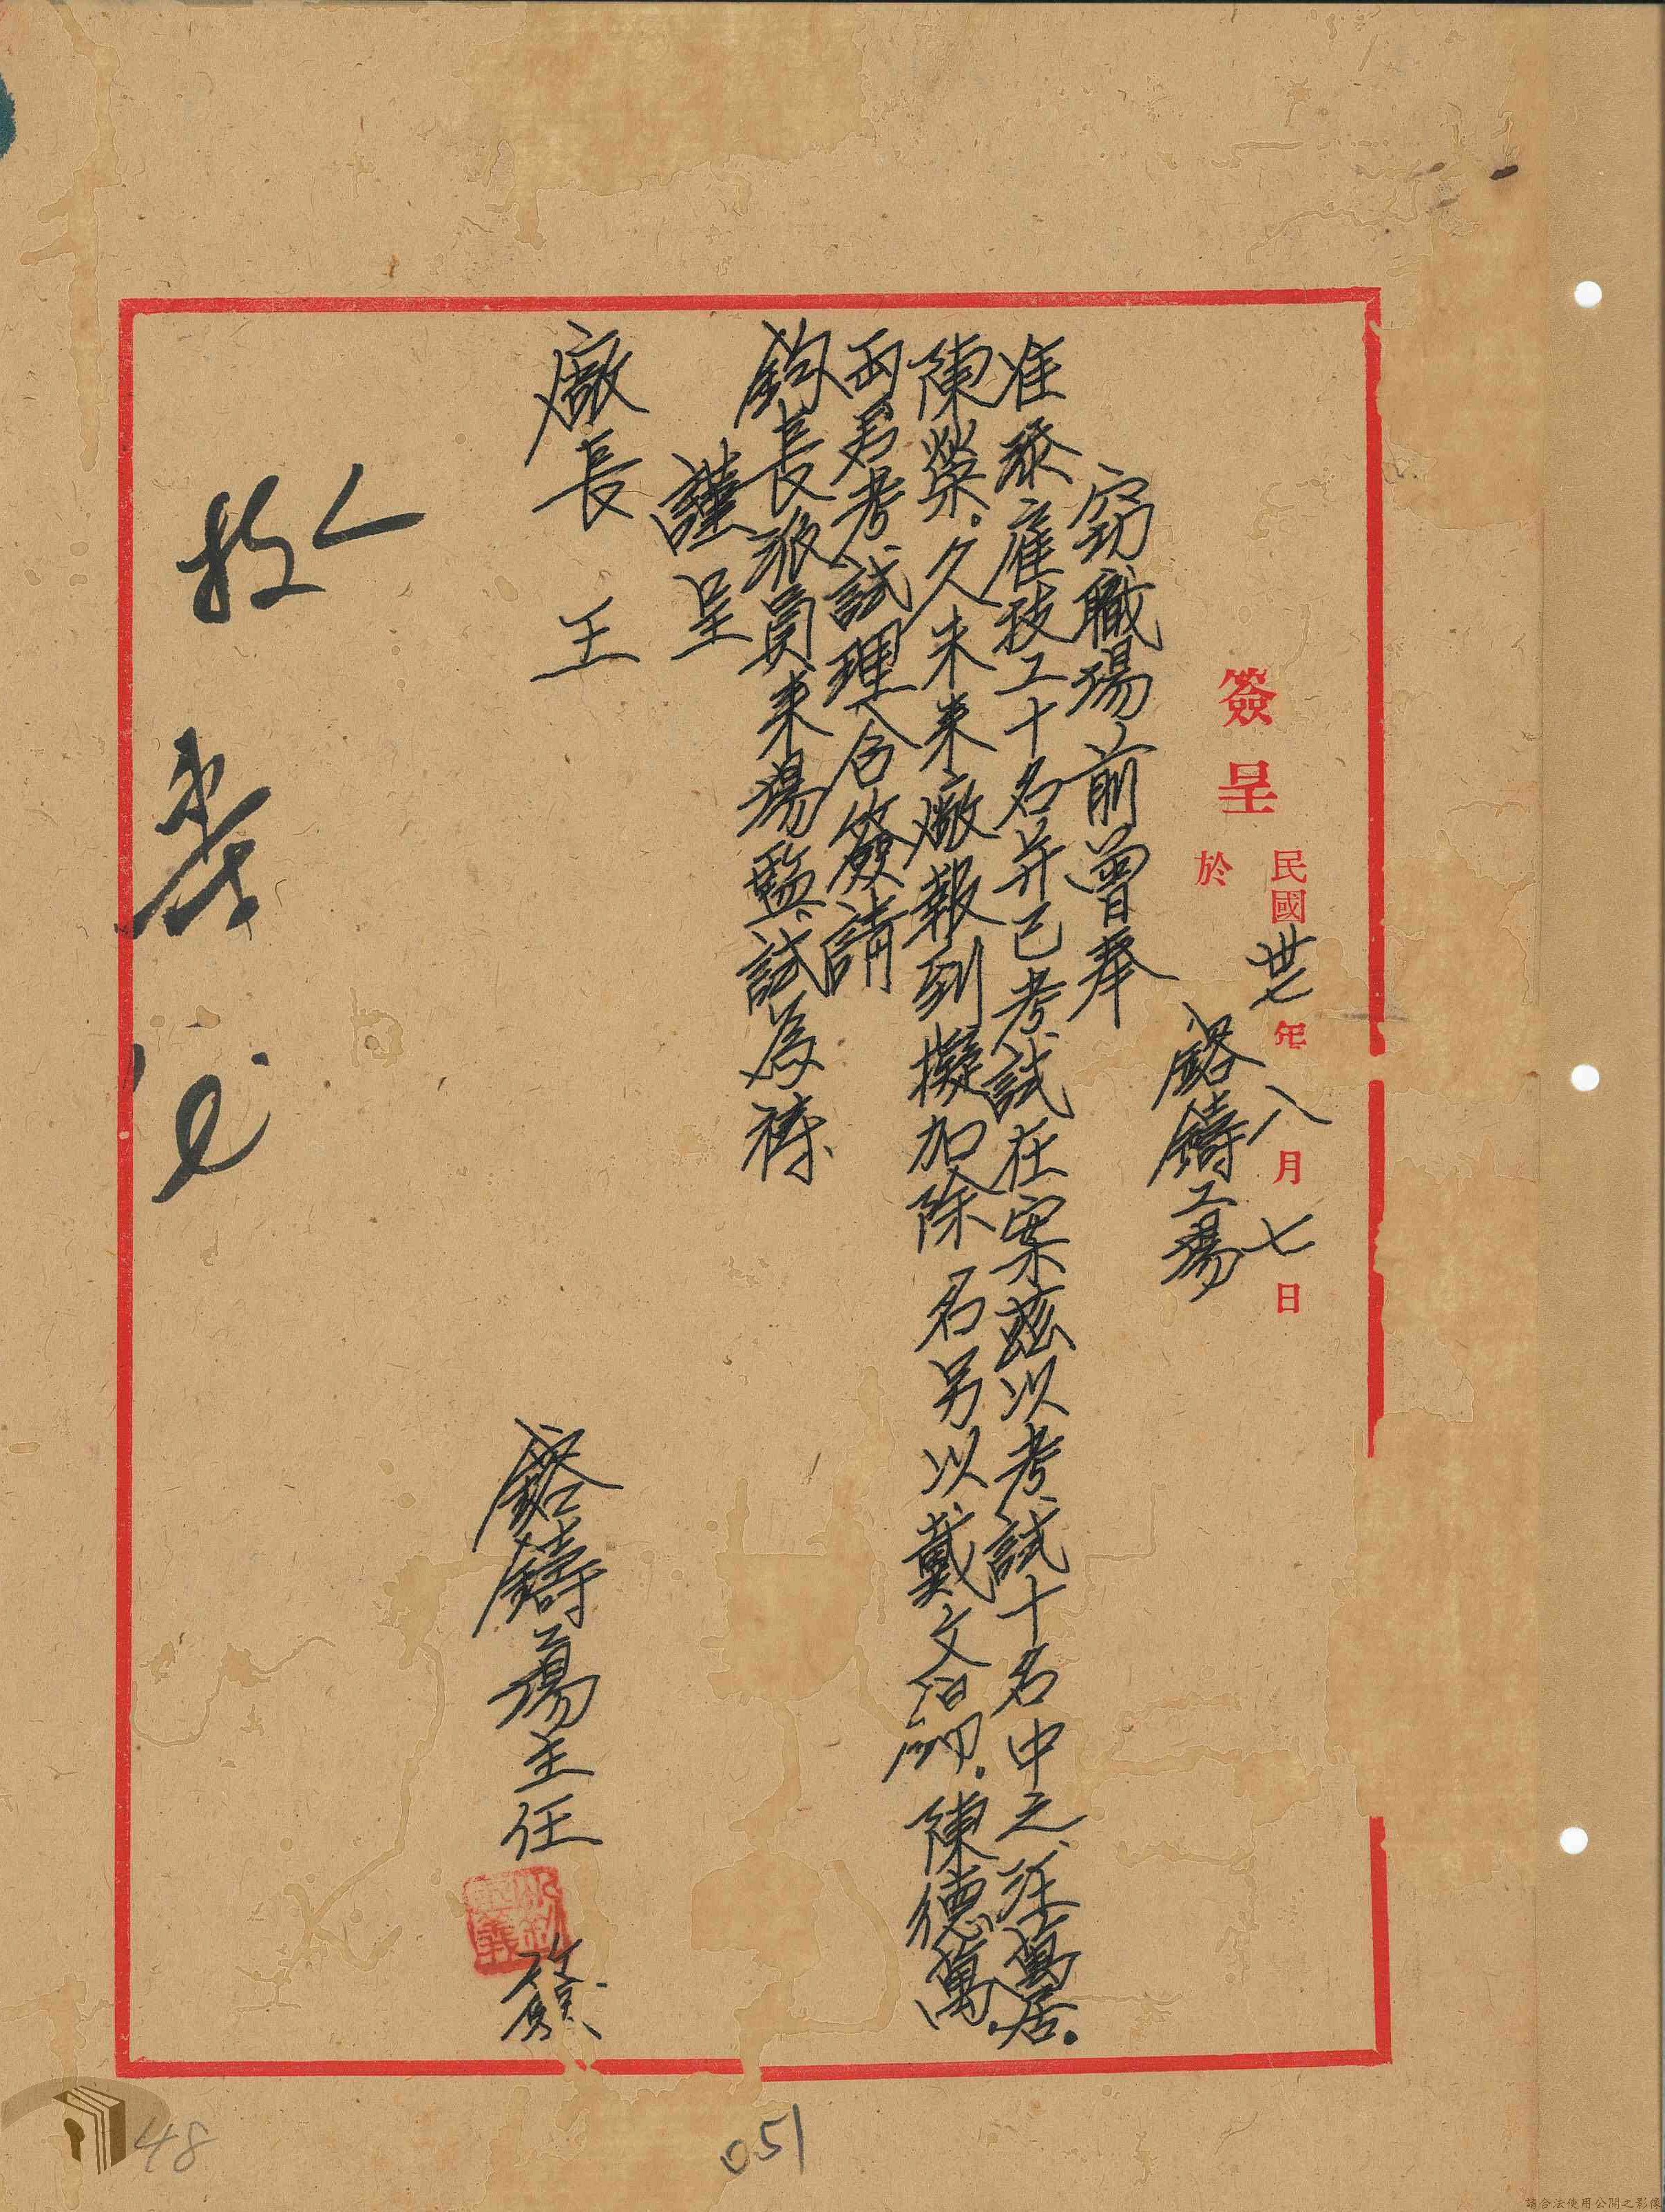 簽呈
民國卅七年八月七日
於
鎔鑄工場
竊職場前曾奉
准添雇技工十名并已考試在案茲以考試十名中之汪萬居.
陳榮.久未來廠報到擬加除名另以戴文治.陳德萬.
兩名考試理合簽請
鈞長派員來場監試為禱
謹呈
廠長 王
鎔鑄場主任
48
051
請合法使用公開之影像